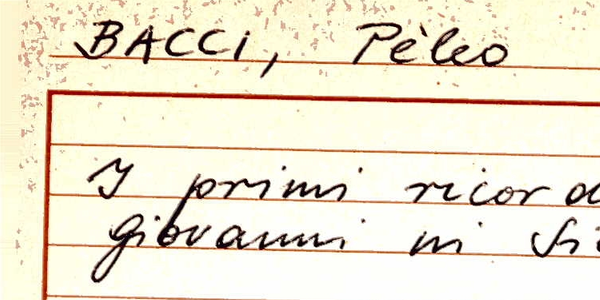 BACCI, Pèleo
I primi ricord
giovanni in Si